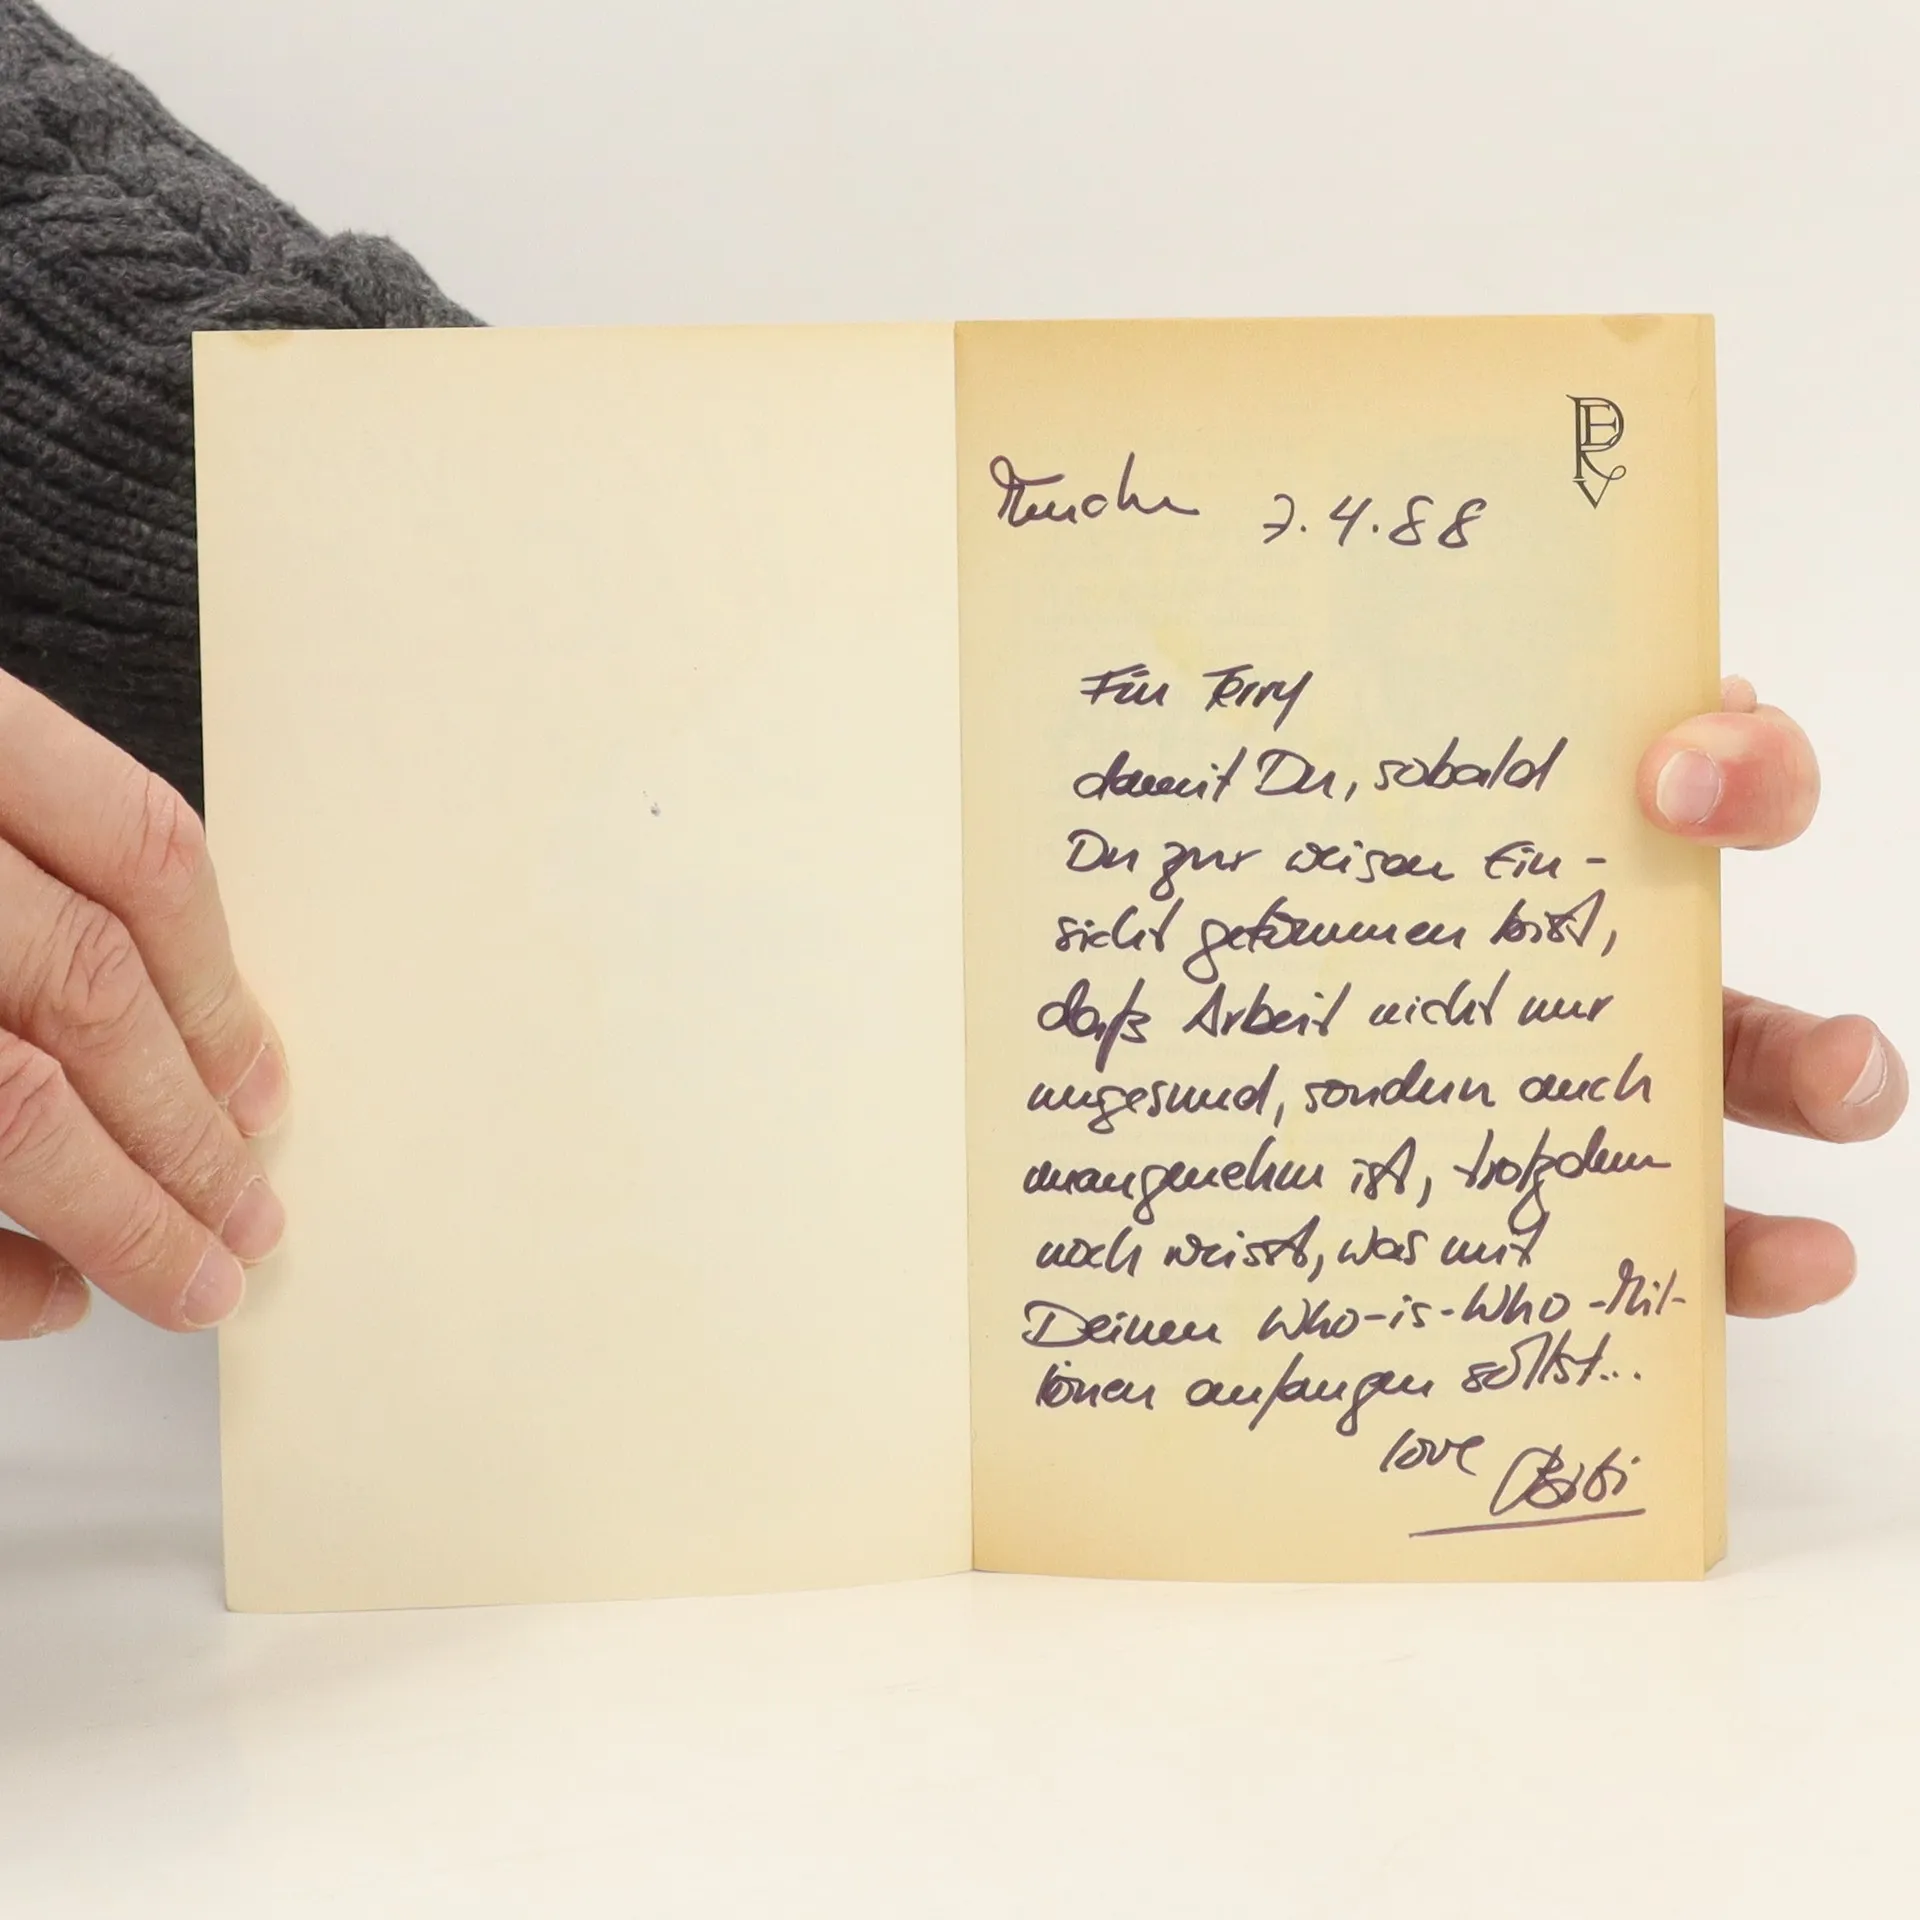 München 7.4.88
Für Terry
damit Du, sobald
Du zur weisen Ein-
sicht gekommen bist,
daß Arbeit nicht nur
ungesund, sondern auch
unangenehm ist, trotzdem
noch weisst, was mit
Deinen Who-is-Who-Mil-
lionen anfangen sollst...
love Bibi